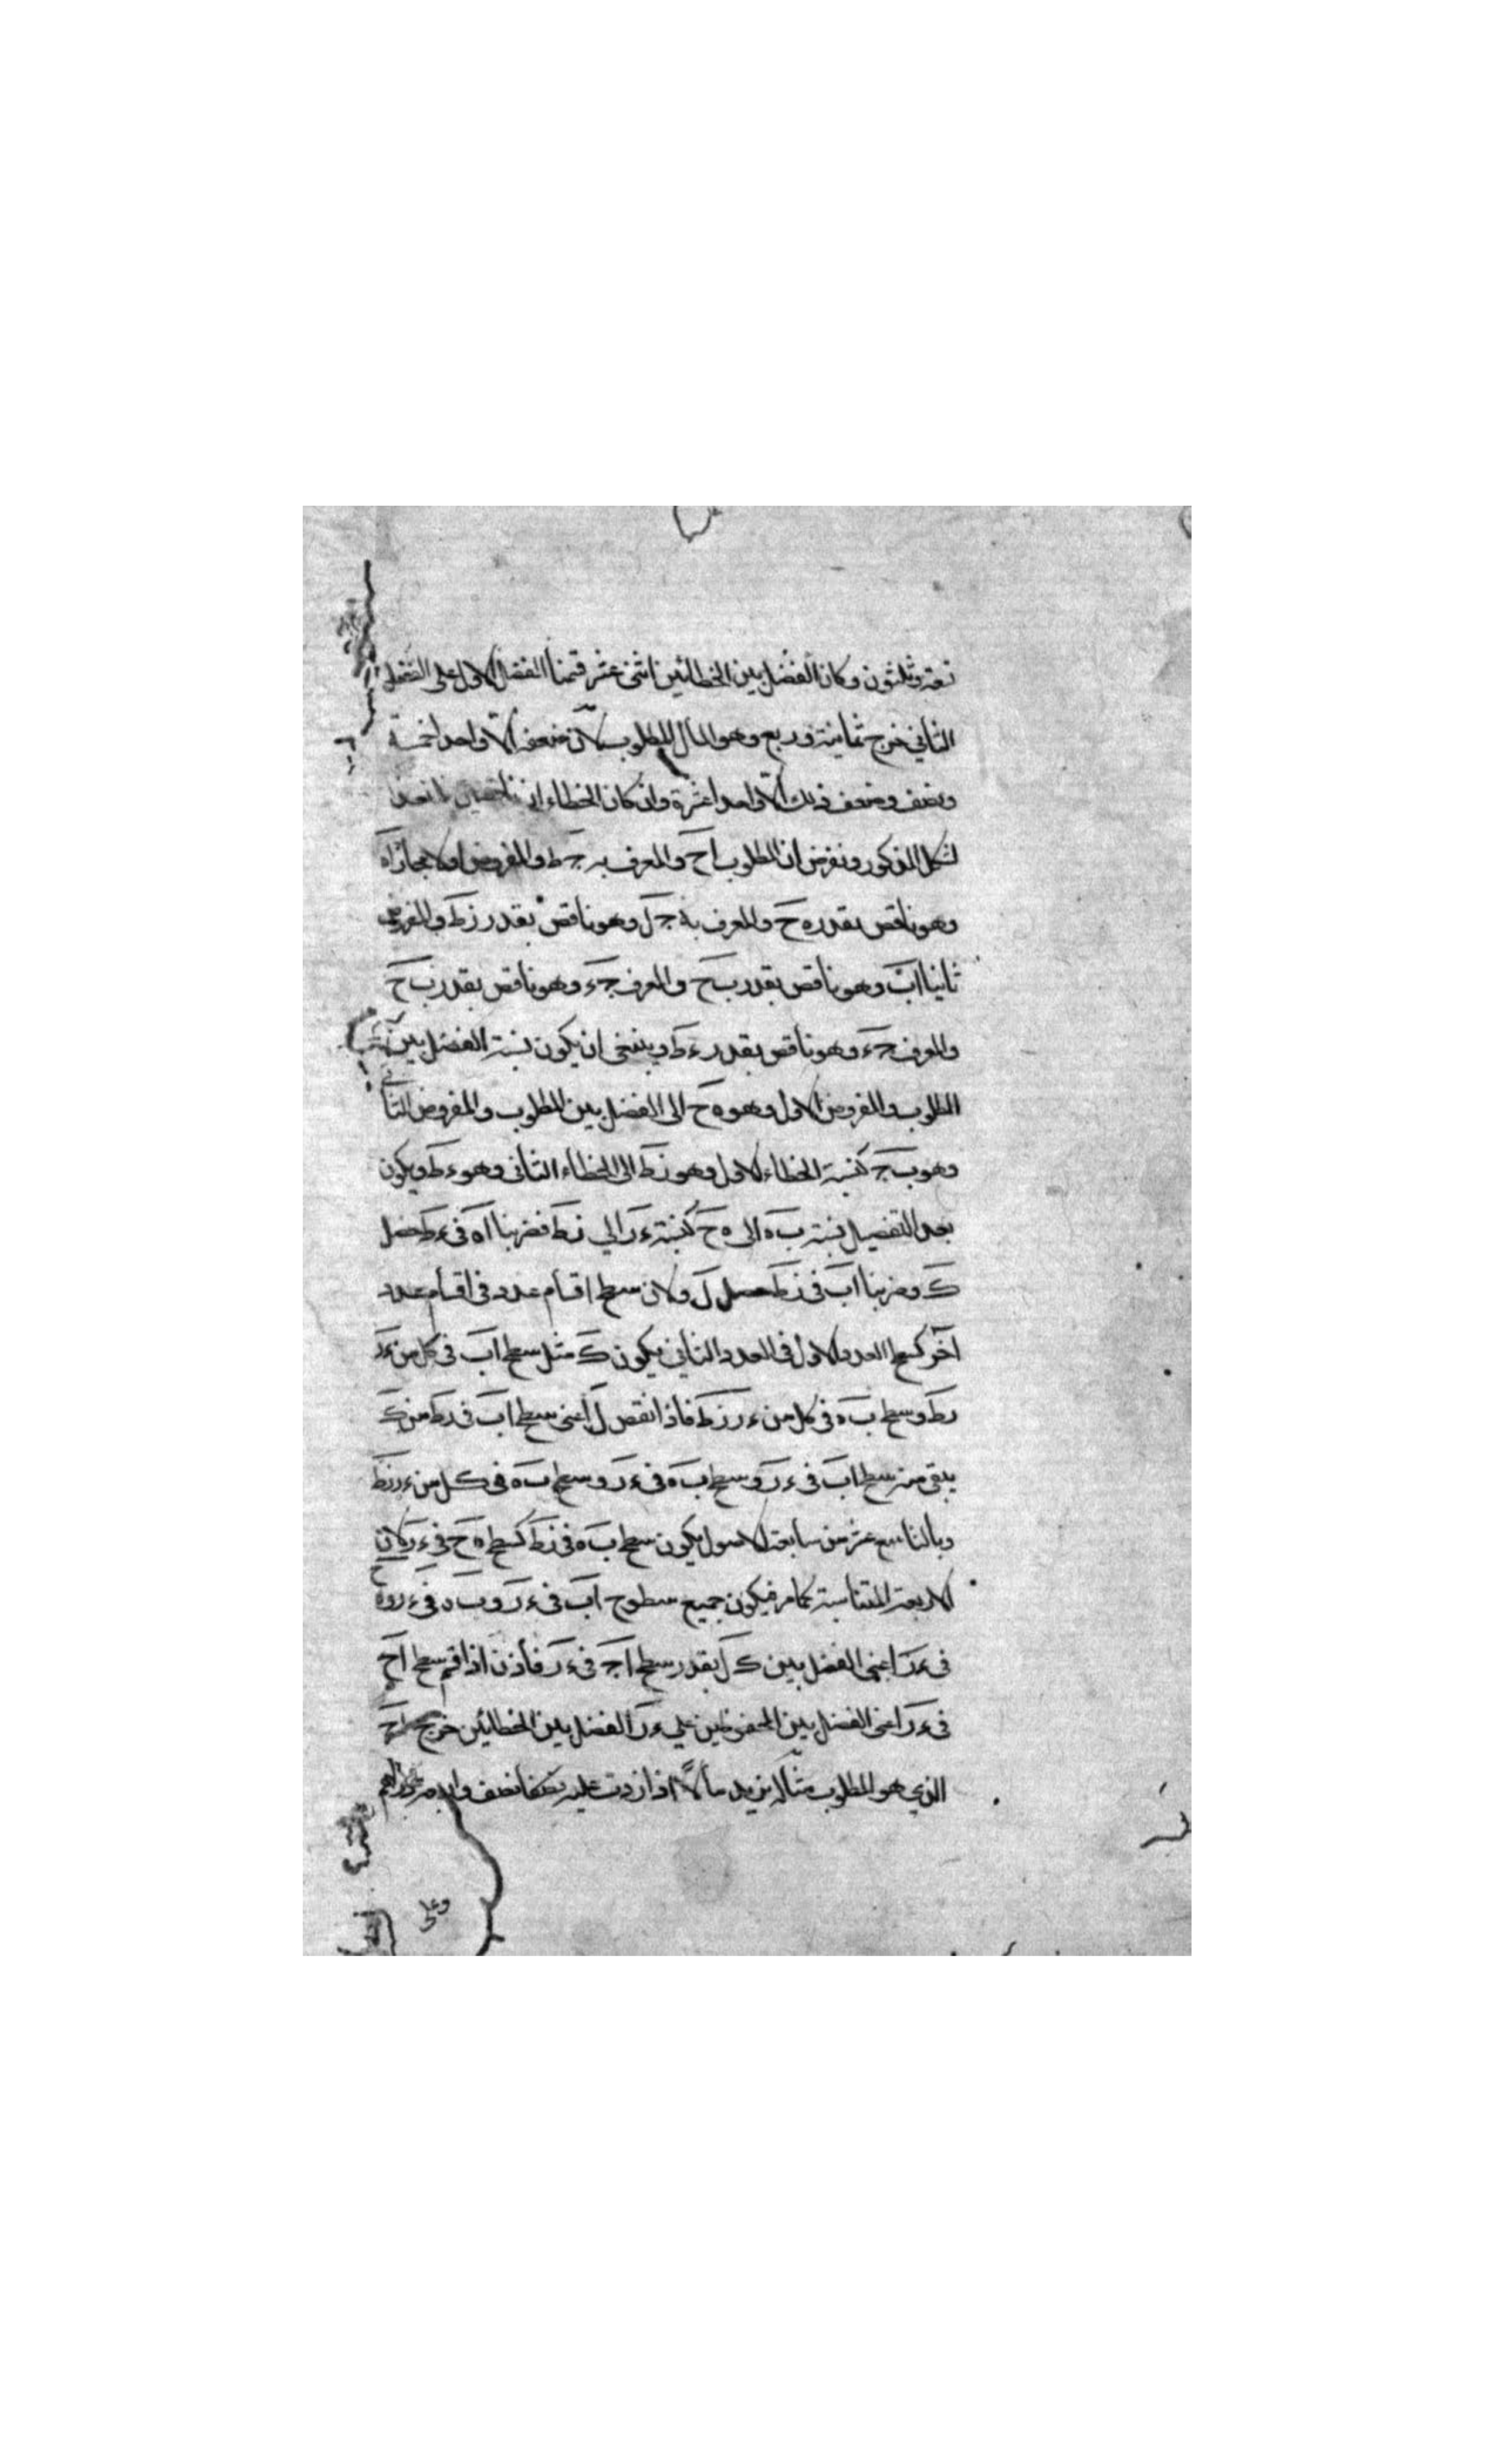 تسعة وثلثون وكان الفضل بين الخطائين اثنى عشر قسمنا الفضل الاول على الفضل
الثاني خرج ثمانية وربع وهو المال المطلوب لان ضعفه الا واحدا خمسة
ونصف وضعف ذلك الا واحدا عشرة وان كان الخطاءان ناقصين
لشكل المذكور ونفرض ان المطلوب اح والمعرف به جط والمفروض اولا اه
وهو ناقص بقدر ه ح والمعرف به جل وهو ناقص بقدر زط والمفروض
ثانيا اب وهو ناقص بقدر ب ح والمعرف جء وهو ناقص بقدر ب ح
والمعرف جء وهو ناقص بقدر ء ط وينبغى ان يكون نسبة الفضل بين
المطلوب والمفروض الاول وهو ه ح الى الفضل بين المطلوب والمفروض الثانى
وهو ب ج كنسبة الخطاء الاول وهو زط الى الخطاء الثانى وهو ء ط ويكون
بعد التفصيل نسبة ب ه الى ه ح كنسبة ء ر الي زط فضربنا اه فى ء ط حصل
ك وضربنا اب فى زط حصل ل ولان سطح اقسام عدد فى اقسام عدد
آخر كسطح العدد الاول فى العدد الثاني يكون ك مثل سطح اب فى كل من ءر
رط وسطح ب ه فى كل من ء ر زط فاذا نقص ل اعنى سطح اب فى رط من ك
يبقى منه سطح اب فى ء ر وسطح ب ه فى ء ر وسطح ب ه فى كل من ء ر زط
وبالتاسع عشر من سابعة الاصول يكون سطح ب ه فى زط كسطح ه ح فى ء ر لان
الاربعة المتناسبة كما مر فيكون جميع سطوح اب فى ء ر و ب ه فى ء ر و ه ح
فى ء ر اعنى الفضل بين ك ل بقدر سطح اج فى ء ر فاذن اذا قسم سطح اح
فى ء ر اعنى الفضل بين المحفوظين علي ء ر الفضل بين الخطائين خرج اح
الذي هو المطلوب مثاله نريد مالاً اذا زدت عليه نصفا
وعلى